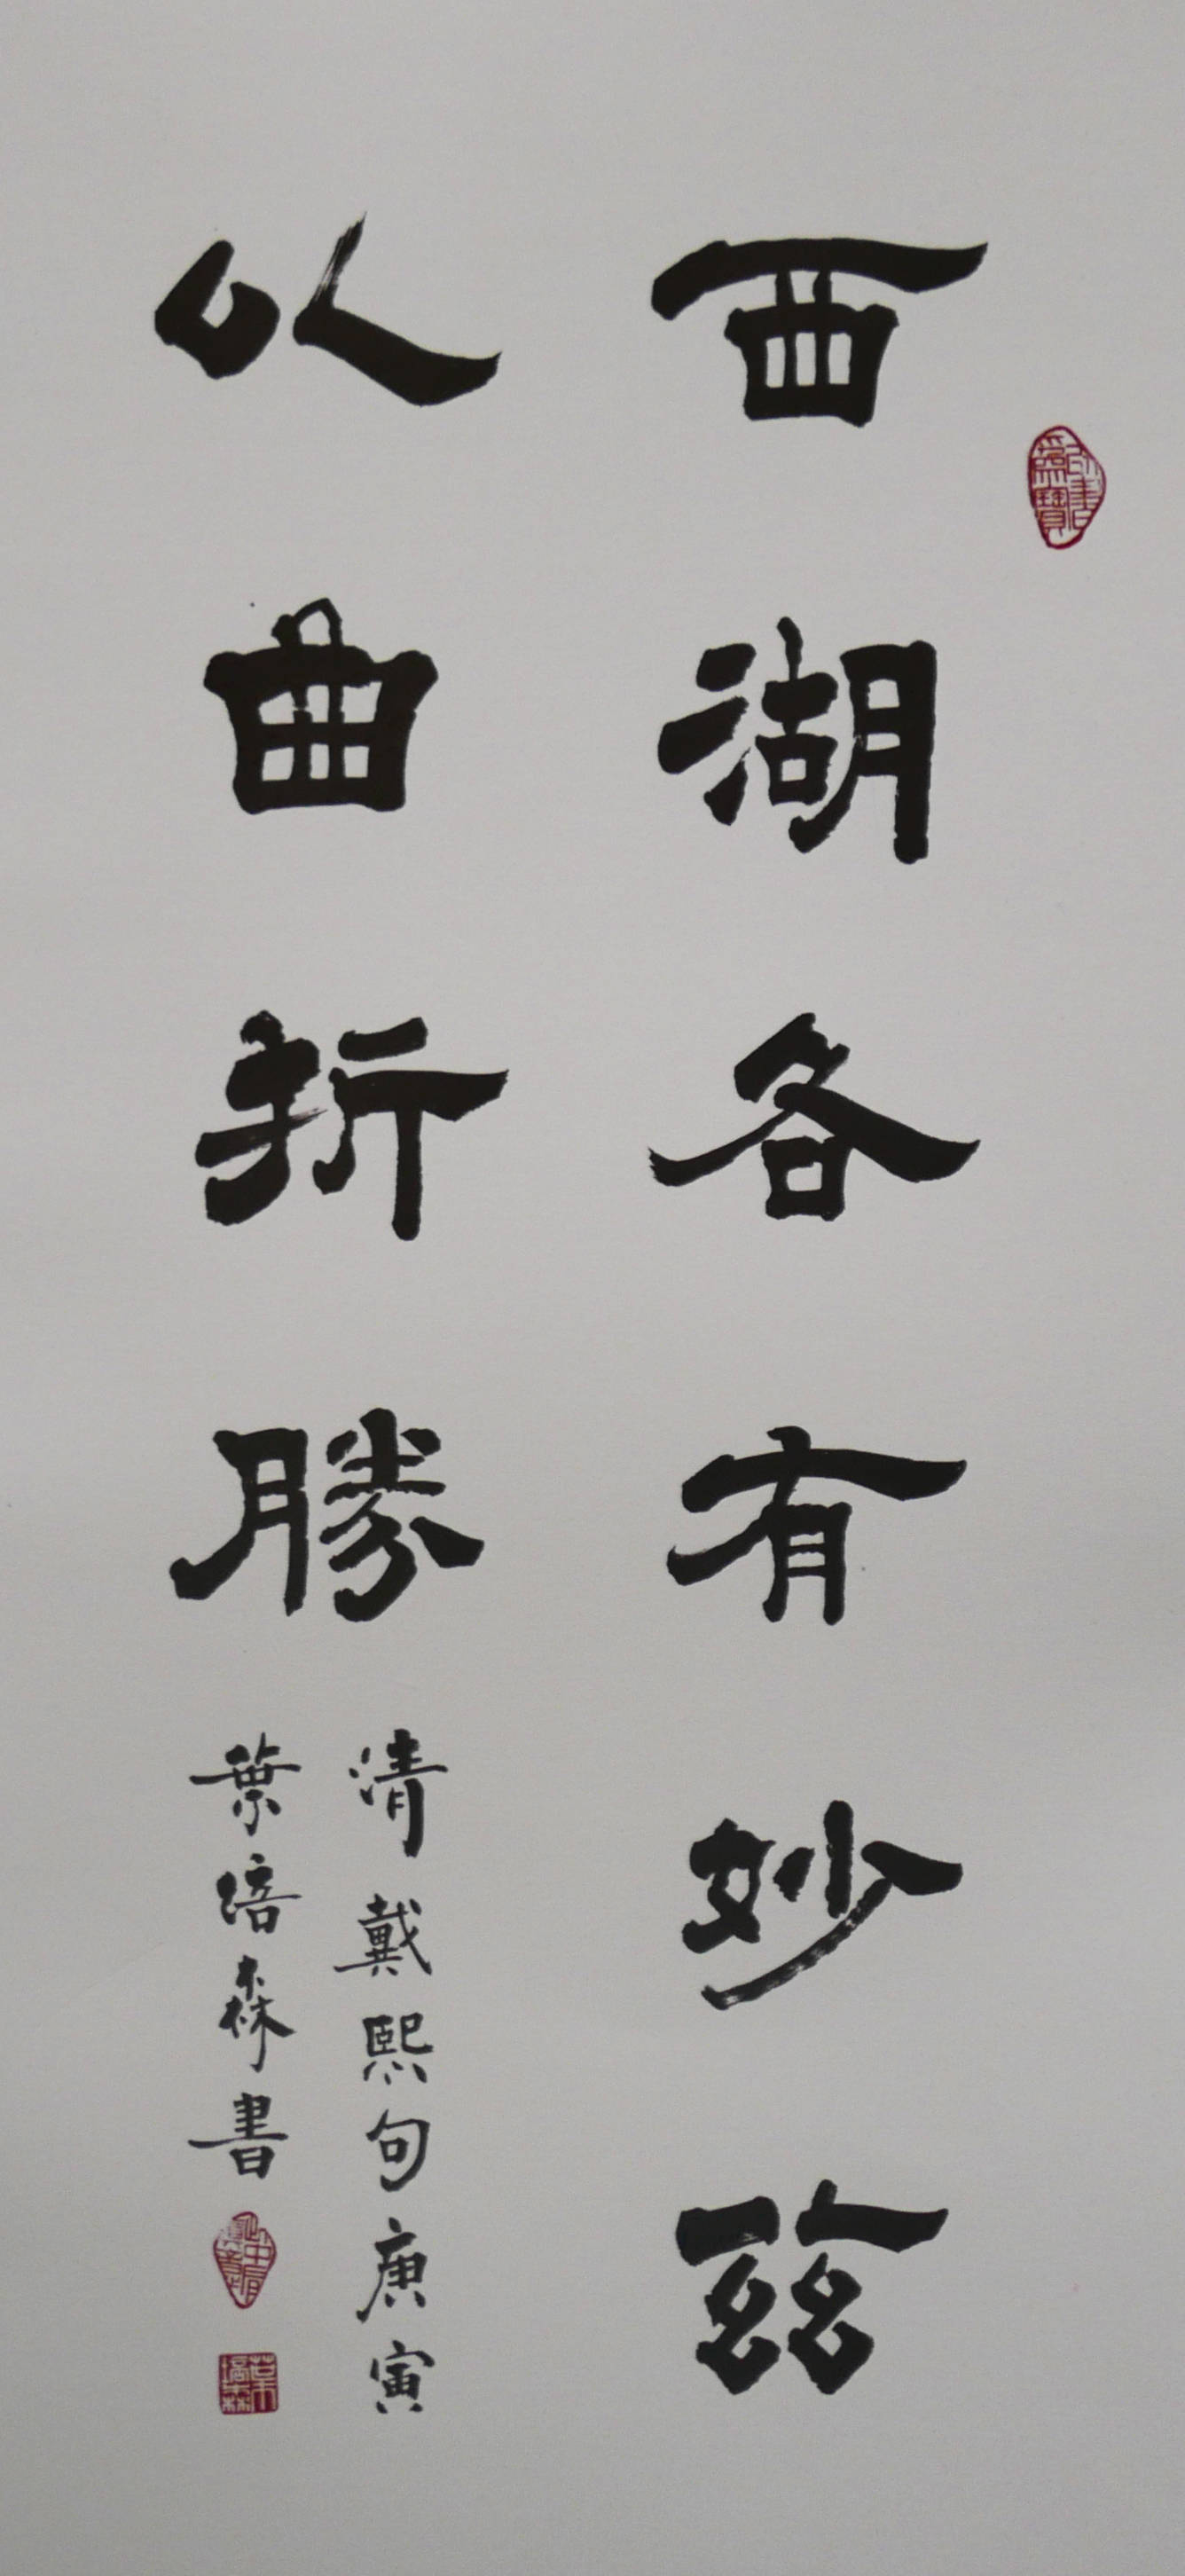 西湖各有妙兹
以曲折勝
清戴熙句庚寅
葉培森書
葉培森